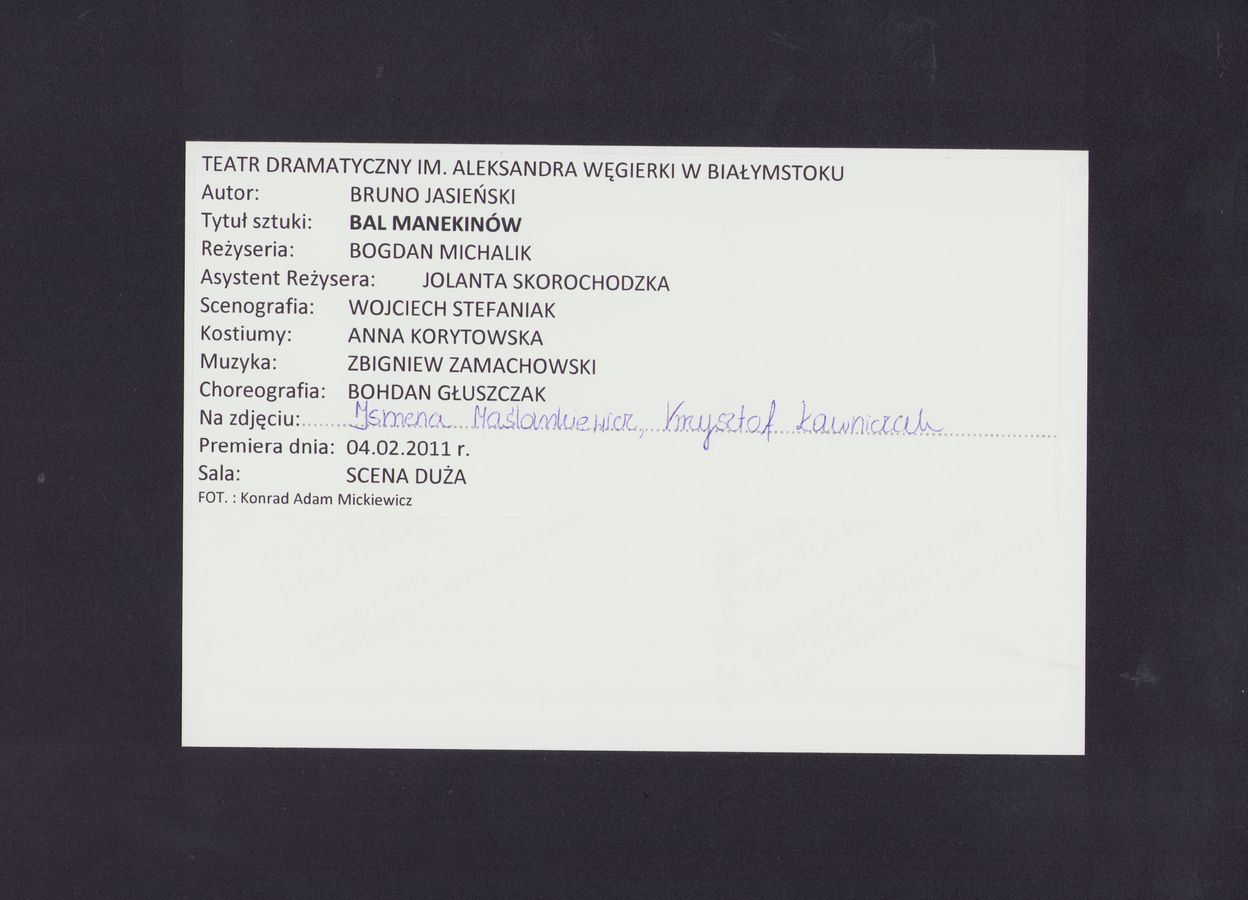 TEATR DRAMATYCZNY IM. ALEKSANDRA WĘGIERKI W BIAŁYMSTOKU
Autor: BRUNO JASIEŃSKI
Tytuł sztuki: BAL MANEKINÓW
Reżyseria: BOGDAN MICHALIK
Asystent Reżysera: JOLANTA SKOROCHODZKA
Scenografia: WOJCIECH STEFANIAK
Kostiumy: ANNA KORYTOWSKA
Muzyka: ZBIGNIEW ZAMACHOWSKI
Choreografia: BOHDAN GŁUSZCZAK
Na zdjęciu: Ismena Maślankiewicz, Krzysztof Ławniczak
Premiera dnia: 04.02.2011 r.
Sala: SCENA DUŻA
FOT. : Konrad Adam Mickiewicz